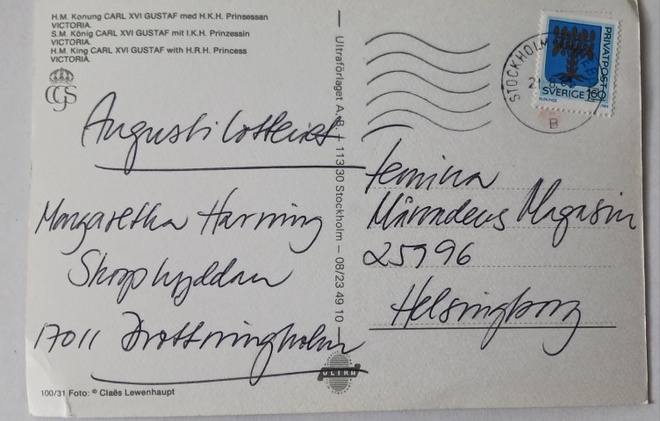 H.M. Konung CARL XVI GUSTAF med H.K.H. Prinsessan
VICTORIA.
S.M. König CARL XVI GUSTAF mit I.K.H. Prinzessin
VICTORIA.
H.M. King CARL XVI GUSTAF with H.R.H. Princess
VICTORIA.
CGS
Augustilotteriet
Margaretha Harning
Skogshyddan
17011 Drottningholm
100/31 Foto: © Claës Lewenhaupt
Ultraförlaget A.B. – 113 30 Stockholm – 08/23 49 10
ULTRA
STOCKHOLM
B
PRIVATPOST
SVERIGE 1.60
Femina
Månadens Magasin
25196
Helsingborg